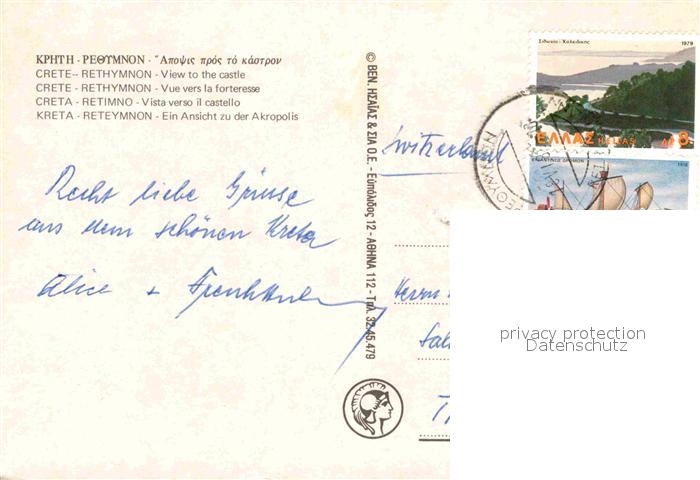 ΚΡΗΤΗ - ΡΕΘΥΜΝΟΝ - Ἄποψις πρός τό κάστρον
CRETE-- RETHYMNON - View to the castle
CRETE - RETHYMNON - Vue vers la forteresse
CRETA - RETIMNO - Vista verso il castello
KRETA - RETEYMNON - Ein Ansicht zu der Akropolis
Recht liebe Grüsse
aus dem schönen Kreta
Alice +
© ΒΕΝ. ΗΣΑΪΑΣ & ΣΙΑ Ο.Ε. - Εὐπόλιδος 12 - ΑΘΗΝΑ 112 - Τηλ. 32.45.479
Switzerland
Herrn
1979
ΕΛΛΑΣ HELLAS ΔΡ 8
privacy protection
Datenschutz